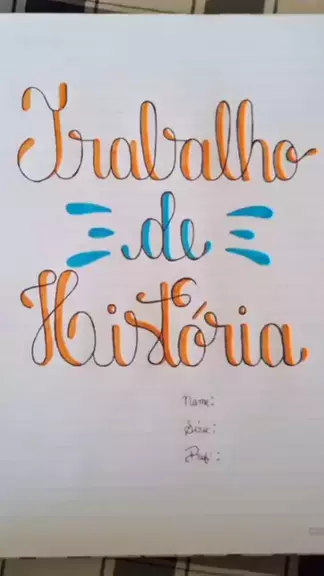 Trabalho
de
História
Nome:
Série:
Prof: